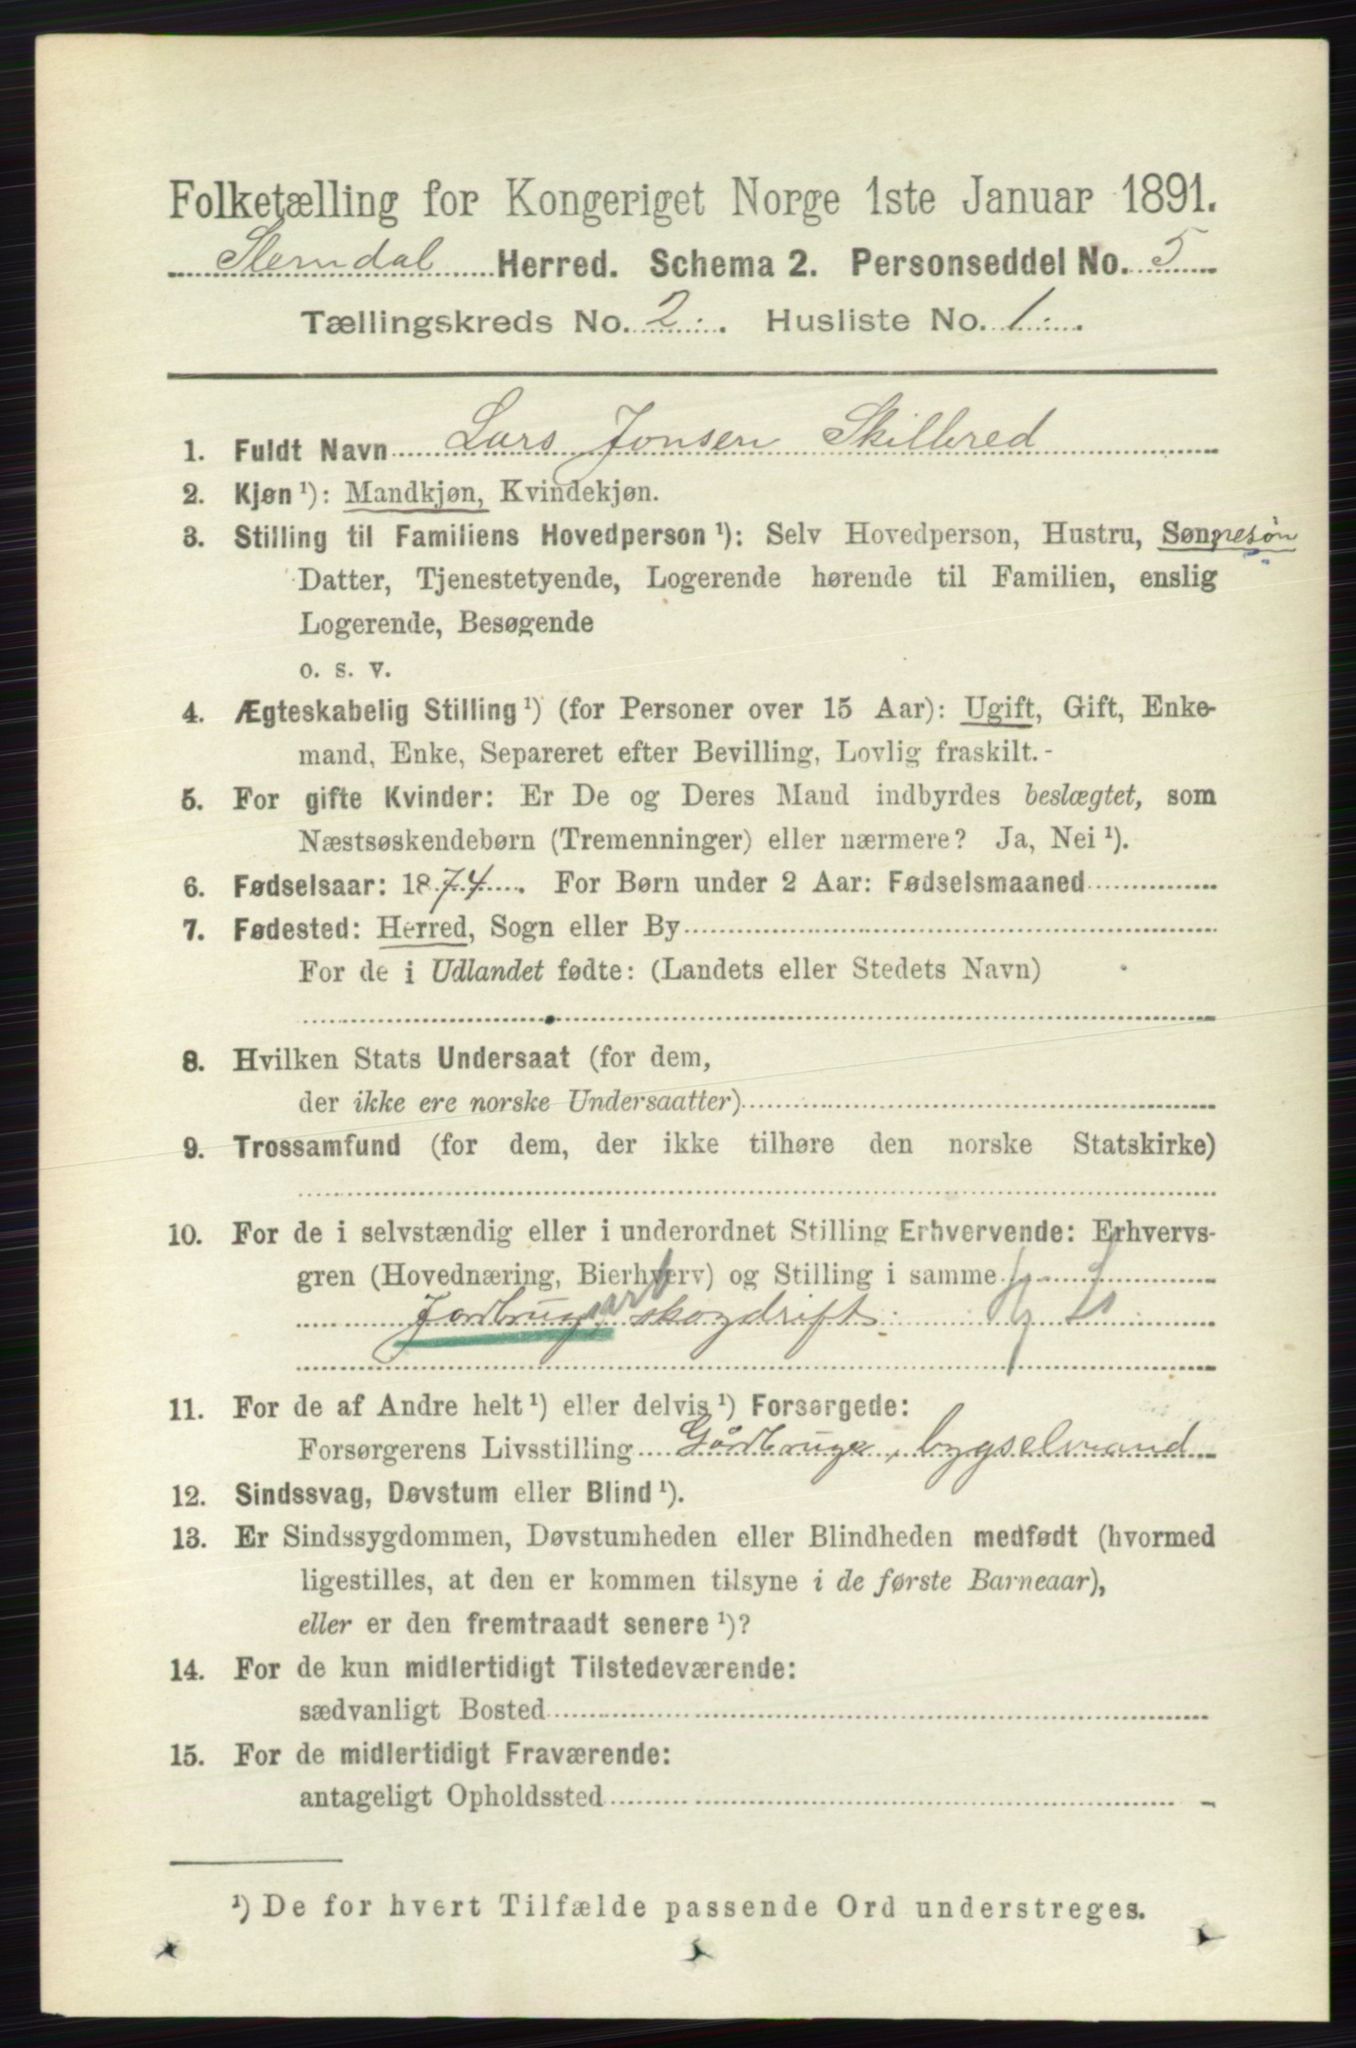 Folketælling for Kongeriget Norge 1ste Januar 1891.
Slemdal Herred. Schema 2. Personseddel No. 5
Tællingskreds No. 2. Husliste No. 1.
1. Fuldt Navn Lars Jonsen Skilbred
2. Kjøn ¹): Mandkjøn, Kvindekjøn.
3. Stilling til Familiens Hovedperson ¹): Selv Hovedperson, Hustru, Søn,
Datter, Tjenestetyende, Logerende hørende til Familien, enslig
Logerende, Besøgende
o. s. v.
4. Ægteskabelig Stilling ¹) (for Personer over 15 Aar): Ugift, Gift, Enke-
mand, Enke, Separeret efter Bevilling, Lovlig fraskilt. -
5. For gifte Kvinder: Er De og Deres Mand indbyrdes beslægtet, som
Næstsøskendebørn (Tremenninger) eller nærmere? Ja, Nei ¹).
6. Fødselsaar: 1874. For Børn under 2 Aar: Fødselsmaaned
7. Fødested: Herred, Sogn eller By
For de i Udlandet fødte: (Landets eller Stedets Navn)
8. Hvilken Stats Undersaat (for dem,
der ikke ere norske Undersaatter)
9. Trossamfund (for dem, der ikke tilhøre den norske Statskirke)
10. For de i selvstændig eller i underordnet Stilling Erhvervende: Erhvervs-
gren (Hovednæring, Bierhverv) og Stilling i samme
Jordbrugsarb skogdrift
11. For de af Andre helt ¹) eller delvis ¹) Forsørgede:
Forsørgerens Livsstilling Gårdbruger, bygselmand
12. Sindssvag, Døvstum eller Blind ¹).
13. Er Sindssygdommen, Døvstumheden eller Blindheden medfødt (hvormed
ligestilles, at den er kommen tilsyne i de første Barneaar),
eller er den fremtraadt senere ¹)?
14. For de kun midlertidigt Tilstedeværende:
sædvanligt Bosted
15. For de midlertidigt Fraværende:
antageligt Opholdssted
¹) De for hvert Tilfælde passende Ord understreges.